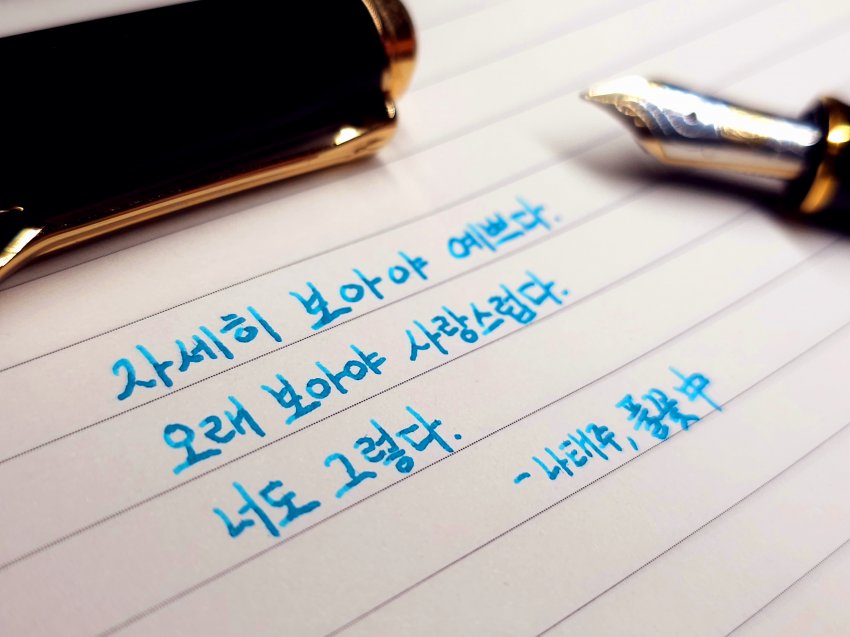 자세히 보아야 예쁘다.
오래 보아야 사랑스럽다.
너도 그렇다.
- 나태주, 풀꽃 中